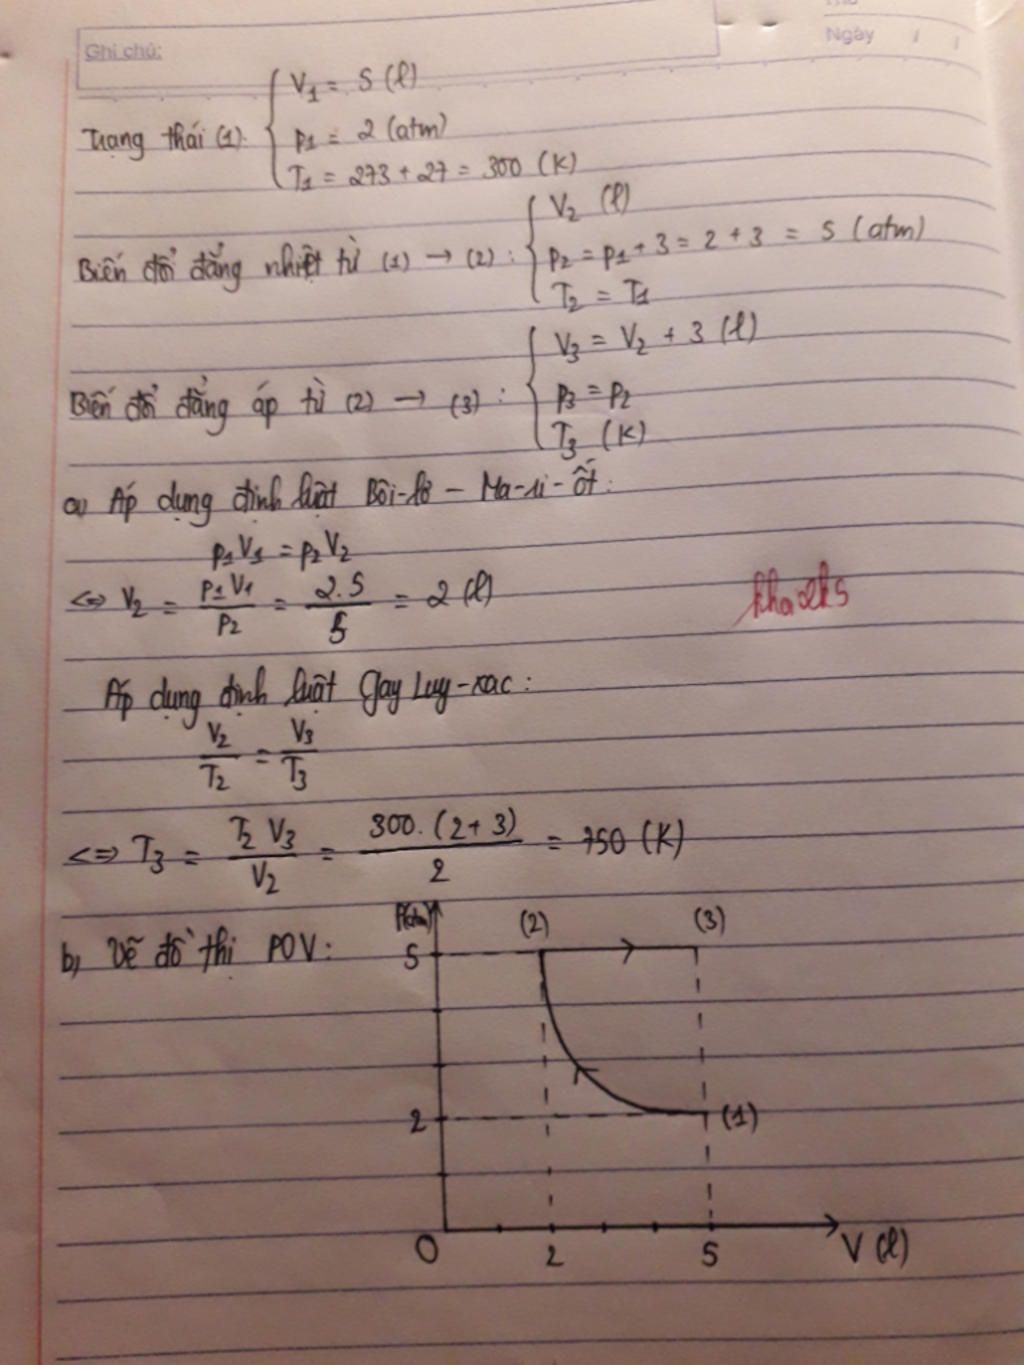 Ghi chú:
Ngày / /
Trạng thái (1). { V₁ = 5 (l)
p₁ = 2 (atm)
T₁ = 273 + 27 = 300 (K)
Biến đổi đẳng nhiệt từ (1) → (2) : { V₂ (l)
p₂ = p₁ + 3 = 2 + 3 = 5 (atm)
T₂ = T₁
Biến đổi đẳng áp từ (2) → (3) : { V₃ = V₂ + 3 (l)
p₃ = p₂
T₃ (K)
a) Áp dụng định luật Bôi-lơ - Ma-ri-ốt:
p₁V₁ = p₂V₂
<=> V₂ = p₁V₁ / p₂ = 2.5 / 5 = 2 (l)
kha2k5
Áp dụng định luật Gay Luy-xac:
V₂ / T₂ = V₃ / T₃
<=> T₃ = T₂ V₃ / V₂ = 300. (2+3) / 2 = 750 (K)
b, Vẽ đồ thị POV:
P(atm)
(2) (3)
5
2 (1)
O 2 5 V (l)